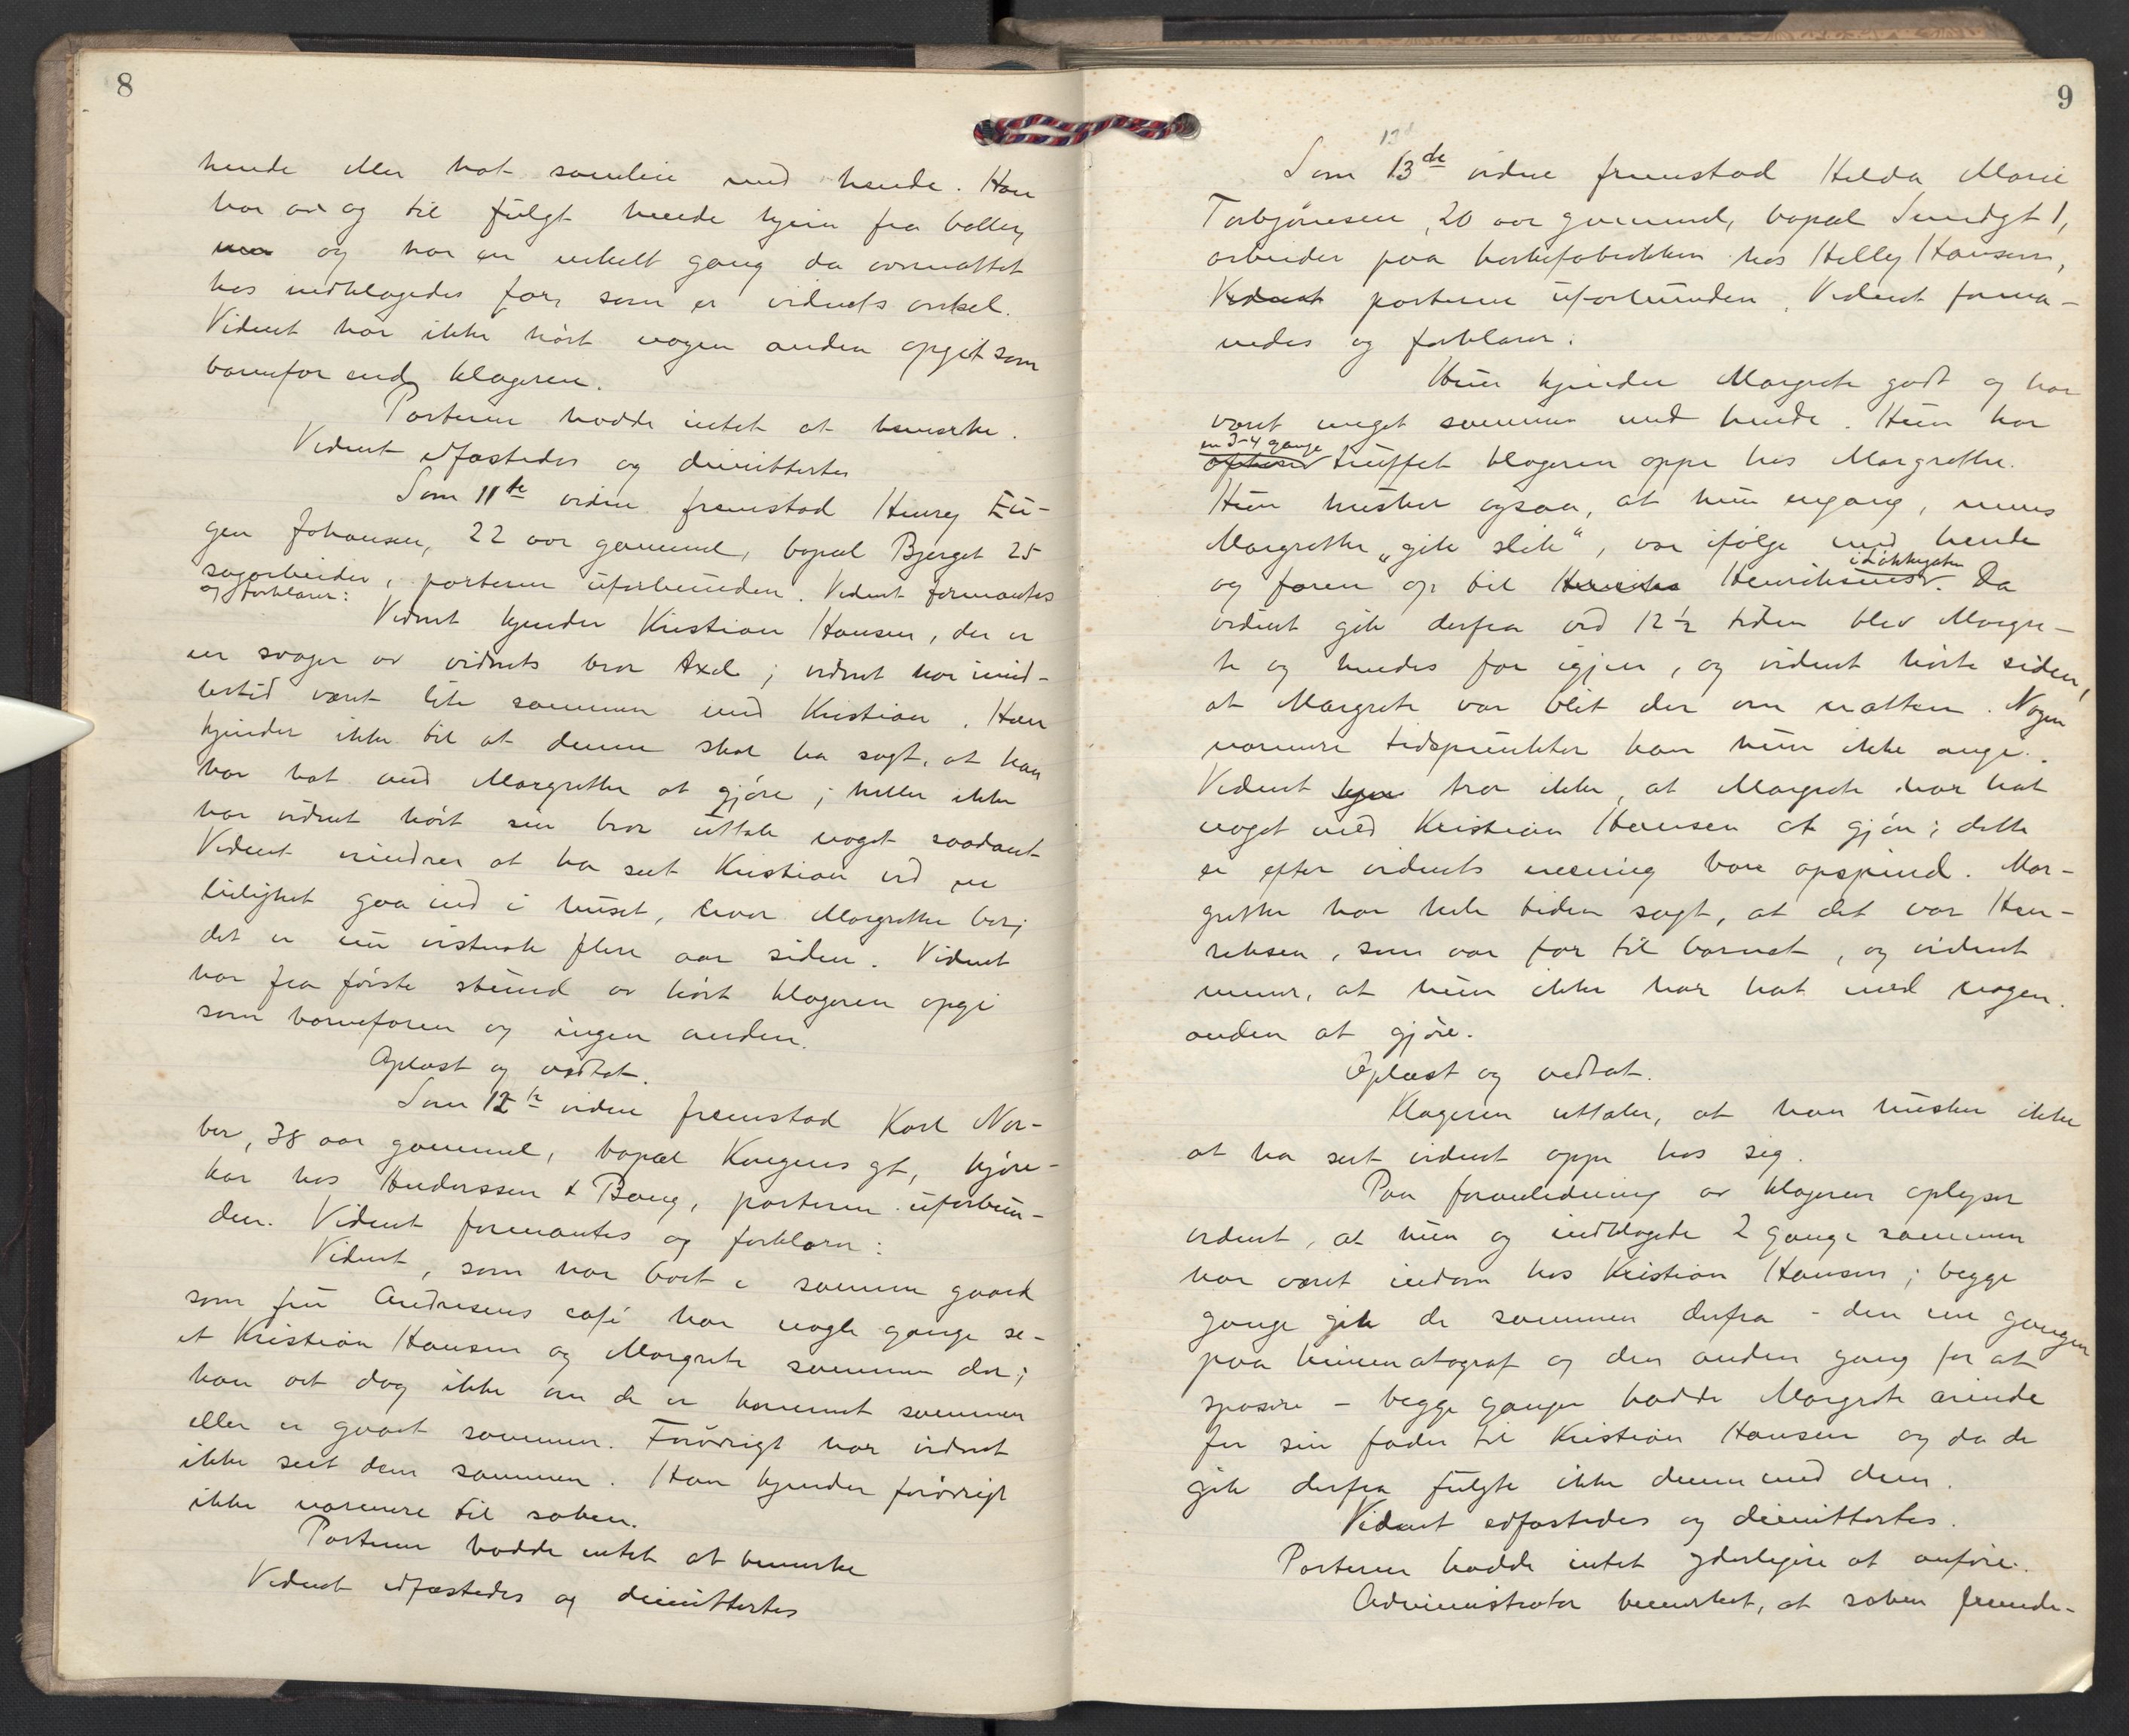 8
hende eller hat samleie med hende. Han
har av og til fulgt hende hjem fra baller,
og har en enkelt gang da overnattet
hos indklagedes far, som er vidnets onkel.
Vidnet har ikke hørt nogen anden opgit som
barnefar end klageren.
Parterne hadde intet at bemerke.
Vidnet edfæstedes og dimittertes
Som 11te vidne fremstod Henry Eu-
gen Johansen, 22 aar gammel, bopæl Bjerget 25
sagarbeider, parterne uforbunden. Vidnet formantes
og forklarer:
Vidnet kjender Kristian Hansen, der er
en svoger av vidnets bror Axel; vidnet har imid-
lertid været lite sammen med Kristian. Han
kjender ikke til at denne skal ha sagt, at han
har hat med Margrethe at gjøre; heller ikke
har vidnet hørt sin bror uttale noget saadant
Vidnet erindrer at ha seet Kristian ved en
leilighet gaa ind i huset, hvor Margrethe bor;
det er nu vistnok flere aar siden. Vidnet
har fra første stund av hørt klageren opgi
som barnefaren og ingen anden.
Oplæst og vedtat.
Som 12te vidne fremstod Karl Nor-
ber, 38 aar gammel, bopæl Kongens gt, kjøre-
kar hos Anderssen & Bang, parterne uforbun-
den. Vidnet formantes og forklarer:
Vidnet, som har boet i samme gaard
som fru Andresens café har nogle gange se-
et Kristian Hansen og Margrete sammen der;
han vet dog ikke om de er kommet sammen
eller er gaaet sammen. Forøvrigt har vidnet
ikke seet dem sammen. Han kjender forøvrigt
ikke nærmere til saken.
Parterne hadde intet at bemerke
Vidnet edfæstedes og dimittertes
9
Som 13de vidne fremstod Hilda Marie
Torbjørnsen, 20 aar gammel, bopæl Smedgt 1,
arbeider paa fabrikken hos Helly Hansen,
Vidnet parterne uforbunden. Vidnet forma-
nedes og forklarer:
Hun kjender Margrete godt og har
været meget sammen med hende. Hun har
en 3-4 gange
oftere truffet klageren oppe hos Margrethe.
Hun husker ogsaa, at hun engang, mens
Margrethe "gik slik", var ifølge med hende
i Løkkegaten
og faren op til Henriksens. Da
vidnet gik derfra ved 12 ½ tiden blev Margre-
te og hendes far igjen, og vidnet hørte siden,
at Margrete var blit der om natten. Nogen
nærmere tidspunkter kan hun ikke angi.
Vidnet tror ikke, at Margrete har hat
noget med Kristian Hansen at gjøre; dette
er efter vidnets mening bare opspind. Mar-
grethe har hele tiden sagt, at det var Hen-
riksen, som var far til barnet, og vidnet
mener, at hun ikke har hat med nogen
anden at gjøre.
Oplæst og vedtat.
Klageren uttaler, at han husker ikke
at ha seet vidnet oppe hos sig.
Paa foranledning av klageren oplyser
vidnet, at hun og indklagede 2 gange sammen
har været indom hos Kristian Hansen; begge
gange gik de sammen derfra - den ene gangen
paa kinematograf og den anden gang for at
spasere - begge ganger hadde Margrete ærinde
for sin fader til Kristian Hansen og da de
gik derfra fulgte ikke denne med dem.
Vidnet edfæstedes og dimittertes.
Parterne hadde intet yderligere at anføre.
Administrator bemerket, at saken fremde-